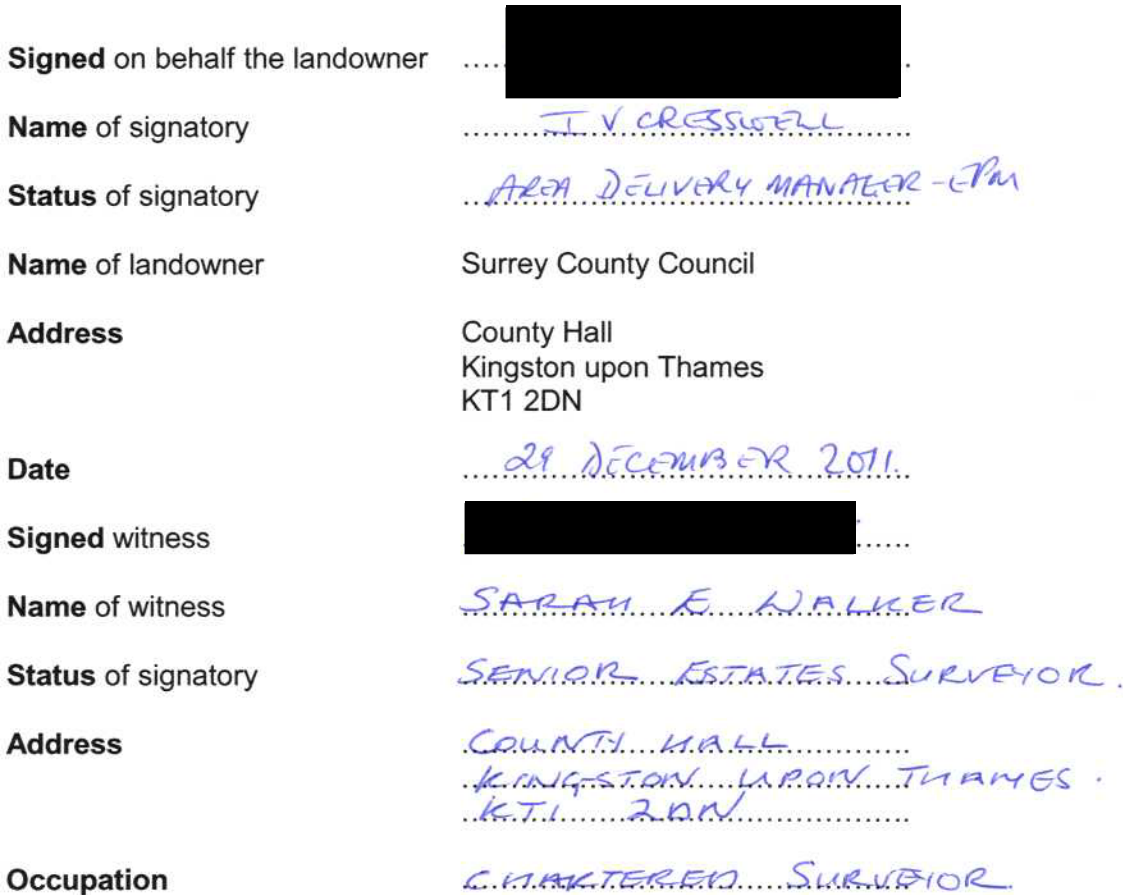 Signed on behalf the landowner
Name of signatory I V CRESSWELL
Status of signatory AREA DELIVERY MANAGER - EPM
Name of landowner Surrey County Council
Address County Hall
Kingston upon Thames
KT1 2DN
Date 29 DECEMBER 2011.
Signed witness
Name of witness SARAH E WALKER
Status of signatory SENIOR ESTATES SURVEYOR.
Address COUNTY HALL
KINGSTON UPON THAMES.
KT1 2DN
Occupation CHARTERED SURVEYOR